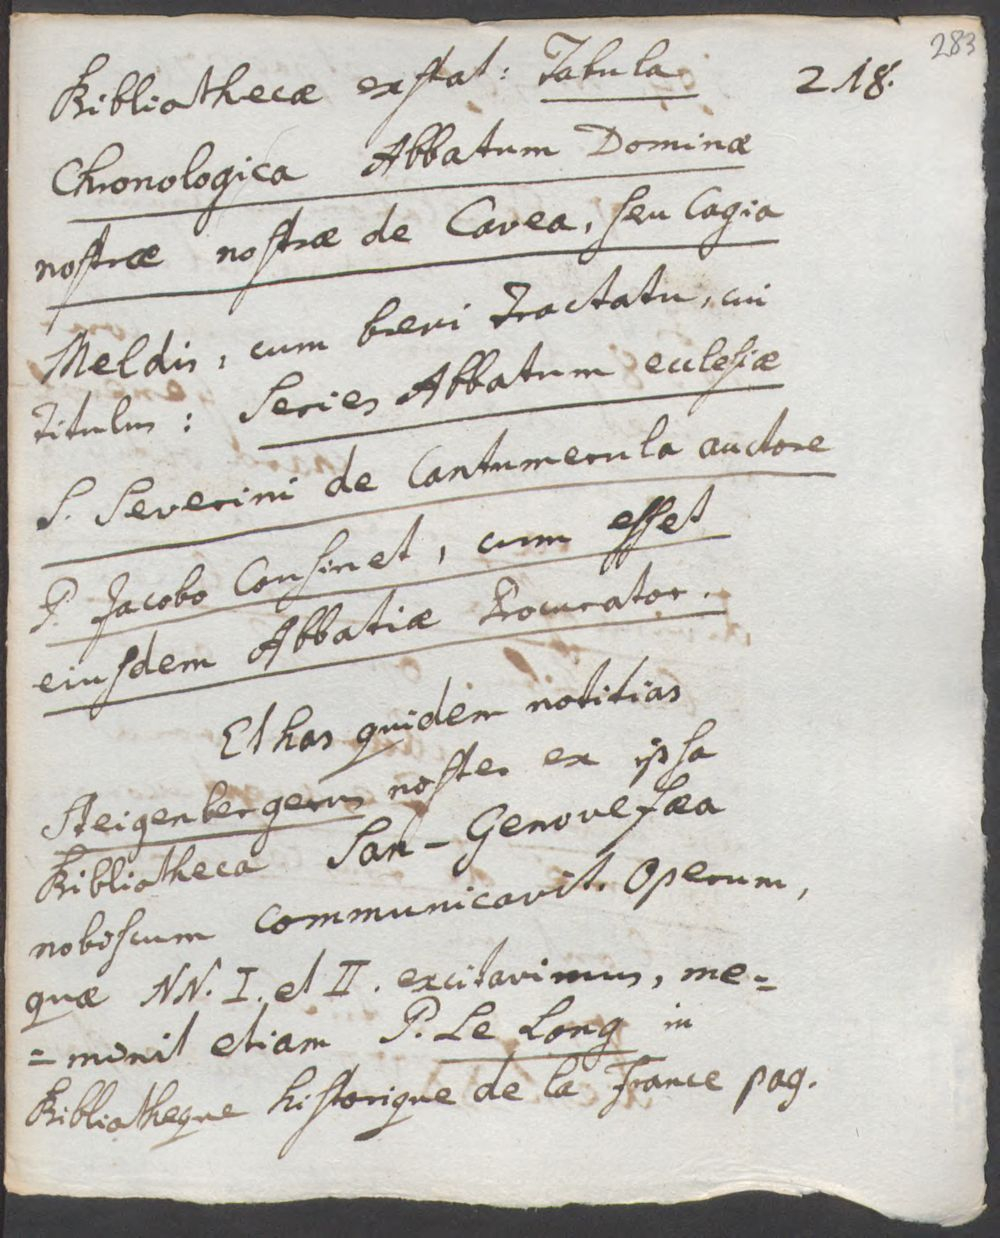 283
218.
Bibliothecæ exstat: Tabula
Chronologica Abbatum Dominæ
nostræ nostræ de Cavea, seu Cagia
Meldis, cum brevi Tractatu, cui
titulus: Series Abbatum ecclesiæ
S. Severini de Cantumerula auctore
P. Jacobo Cousinet, cum esset
eiusdem Abbatiæ Procurator.
Et has quidem notitias
Steigenbergerus noster ex ipsa
Bibliotheca San-Genovefæa
nobiscum communicavit. Operum,
quæ NN. I. et II. excitavimus, me=
=minit etiam P. Le Long in
Bibliotheque historique de la France pag.